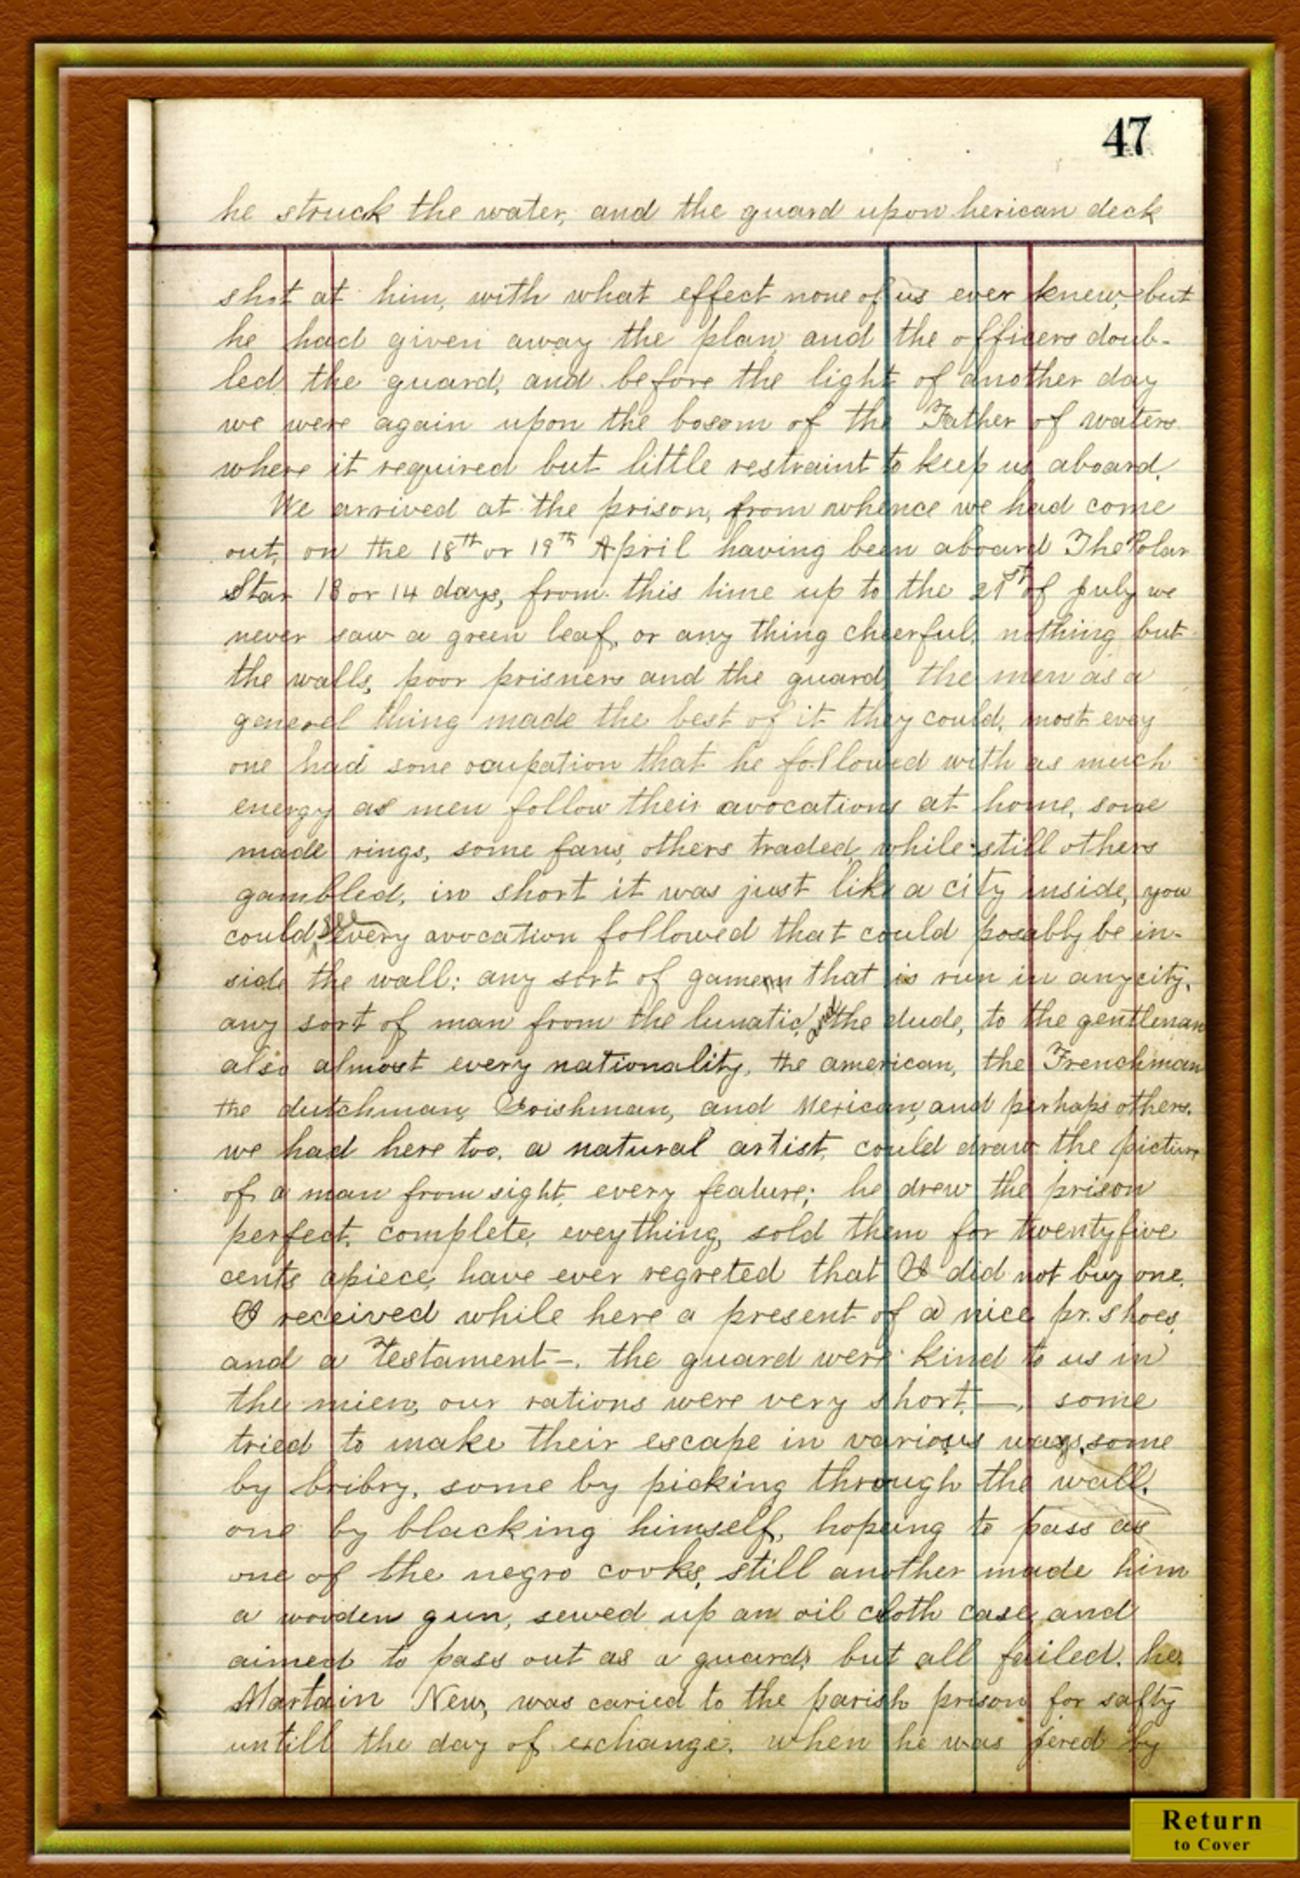 47
he struck the water, and the guard upon herican deck
shot at him, with what effect none of us ever knew, but
he had given away the plan, and the officers doub-
led the guard, and before the light of another day
we were again upon the bosom of the Father of waters
where it required but little restraint to keep us aboard.
We arrived at the prison, from whence we had come
out, on the 18th or 19th April having been aboard The Polar
Star 13 or 14 days, from this time up to the 21st of July we
never saw a green leaf, or any thing cheerful, nothing but
the walls, poor prisners and the guard, the men as a
generel thing made the best of it they could, most evey
one had some ocupation that he followed with as much
energy as men follow their avocations at home, some
made rings, some fans, others traded, while still others
gambled, in short it was just like a city inside, you
could see every avocation followed that could possably be in-
side the wall: any sort of game that is run in any city.
any sort of man from the lunatic, and the dude, to the gentleman
also almost every nationality, the american, the Frenchman
the dutchman, Irishman, and Mexican, and perhaps others.
we had here too, a natural artist, could draw the picture
of a man from sight, every feature; he drew the prison
perfect, complete, eveything, sold them for twentyfive
cents apiece, have ever regreted that I did not buy one.
I received while here a present of a nice pr. shoes,
and a Testament -. the guard were kind to us in
the mien, our rations were very short, -, some
tried to make their escape in various ways, some
by bribry, some by picking through the wall,
one by blacking himself, hopeing to pass as
one of the negro cooks, still another made him
a wooden gun, sewed up an oil cloth case, and
aimed to pass out as a guard, but all failed. he
Martain New, was caried to the parish prison for safty
untill the day of exchange. when he was by
Return
to Cover